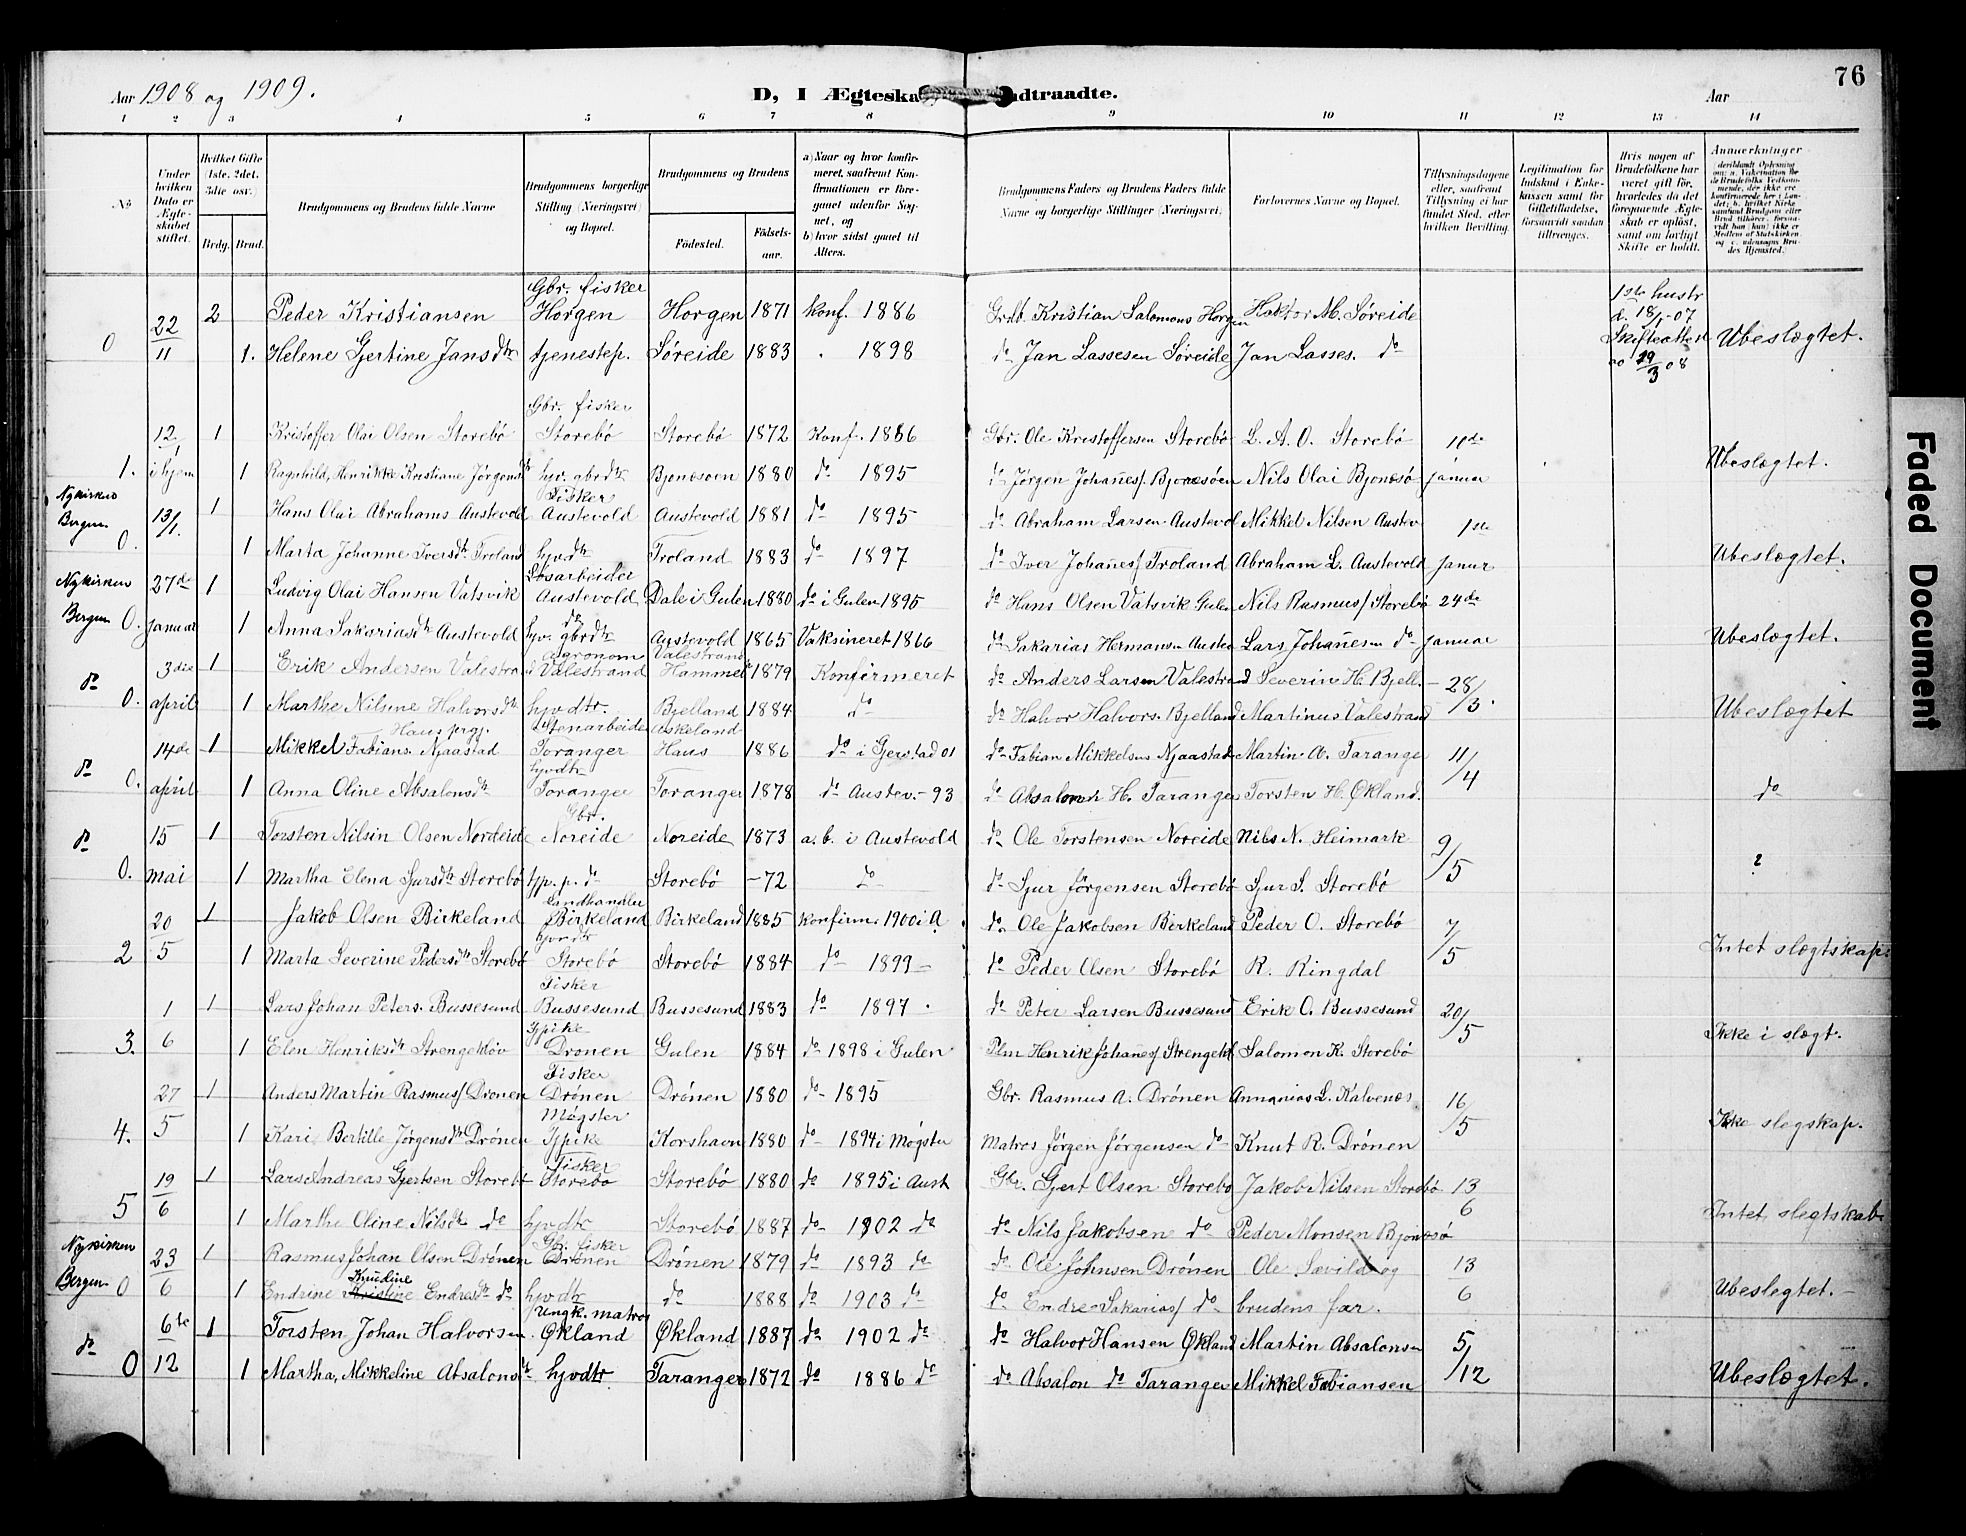 76
Aar 1908 og 1909.
D, I Ægteska dtraadte.
Aar
1 2 3 4 5 6 7 8 9 10 11 12 13 14
No.
Under hvilken Dato er Ægteskabet stiftet.
Hvilket Gifte (1ste, 2det, 3die osv.)
Brdg. Brud.
Brudgommens og Brudens fulde Navne
Brudgommens borgerlige Stilling (Næringsvei) og Bopæl.
Brudgommens og Brudens
Födested.
Födselsaar.
a) Naar og hvor konfirmeret, saafremt Konfirmationen er foregaaet udenfor Sognet, og b) hvor sidst gaaet til Alters.
Brudgommens Faders og Brudens Faders fulde Navne og borgerlige Stillinger (Næringsvei)
Forlovernes Navne og Bopæl.
Tillysningsdagene eller, saafremt Tillysning ei har fundet Sted, efter hvilken Bevilling.
Legitimation for Indskud i Enkekassen samt for Giftetilladelse, forsaavidt saadan tiltrænges.
Hvis nogen af Brudefolkene har været gift før, hvorledes da det foregaaende Ægteskab er oplöst, samt om lovligt Skifte er holdt.
Anmærkninger
0 22/11 2 Peder Kristiansen Gbr. fisker Horgen Horgen 1871 konf. 1886 Grdb. Kristian Salomons Horgen Haktor M. Søreide 1ste hustr d. 18/1-07 Skifteattest 19/3 08
1. Helene Gjertine Jansdtr tjenestep. Søreide 1883 1898 do Jan Lassesen Søreide Jan Lasses. do Ubeslægtet.
1. 12/1 i hjem 1 Kristoffer Olai Olsen Storebö Gbr. fisker Storebö Storebö 1872 Konf. 1886 Gbr. Ole Kristoffersen Storebö L. A. O. Storebö 11de januar
1 Ragnhild, Henrikke Kristiane Jørgensdtr hjv. gbrdtr Bjonesöen 1880 do 1895 do Jørgen Johanes/ Bjonesöen Nils Olai Bjonesö Ubeslægtet.
Nykirken Bergen 0. 13/1. 1 Hans Olai Abrahams Austevold Fisker Austevold Austevold 1881 do 1895 do Abraham Larsen Austevol Mikkel Nilsen Austev 1ste janur
1 Marta Johanne Iversdtr Troland hjvdtr Troland 1883 do 1897 do Iver Johanes/ Troland Abraham L. Austevold Ubeslægtet.
Nykirken Bergen 0. 27de januar 1 Ludvig Olai Hansen Vatsvik Løsarbeider Austevold Dale i Gulen 1880 do i Gulen 1895 do Hans Olsen Vatsvik Gulen Nils Rasmus/ Storebø 24de januar
1 Anna Sakariasdtr Austevold hjv. gbrdtr Austevold 1865 Vaksineret 1866 do Sakarias Hermansen Auste Lars Johanesen do Ubeslægtet.
do 0. 3die april 1 Erik Andersen Valestrand agronom Valestrand Valestrand Hammer 1879 Konfirmeret do Anders Larsen Valestrand Severin H. Bjell. 28/3.
1 Marthe Nilsine Halvorsdtr hjvdtr. Bjelland 1884 do do Halvor Halvors. Bjelland Martinus Valestrand Ubeslægtet
do 0. 14de april 1 Mikkel Fabians. Njaastad Haus prgj. Stenarbeider Toranger Askeland Haus 1886 do i Gjerstad 01 do Fabian Mikkelsen Njaastad Martin A. Taranger 11/4
1 Anna Oline Absalonsdtr hjvdtr Toranger Toranger 1878 do Austev. 93 do Absalon H. Taranger Torsten H. Økland. do
do 0. 15 mai 1 Torsten Nilsin Olsen Nordeide Gbr. Noreide Noreide 1873 a. b. i Austevold do Ole Torstensen Noreide Nils N. Heimark 9/5
1 Martha Elena Sjursdtr Storebö tjp. p. do Storebö -72 do do Sjur Jörgensen Storebö Sjur S. Storebö ?
2 20/5 1 Jakob Olsen Birkeland Landhandler Birkeland Birkeland 1885 konfirm. 1900 i A. do Ole Jakobsen Birkeland Peder O. Storebö 7/5
1 Marta Severine Pedersdtr Storebö hjvdtr Storebö Storebö 1884 do 1899 do Peder Olsen Storebö R. Ringdal Intet slægtskap.
3. 1/6 1 Lars Johan Peters. Bussesund Fisker Bussesund Bussesund 1883 do 1897. do Peter Larsen Bussesund Erik O. Bussesund 20/5
1 Elen Henriksdtr Strengeklöv Tjpike Dronen Gulen 1884 do 1898 i Gulen Plm Henrik Johanes/ Strengekl Salomon K. Storebö Ikke i slægt.
4. 27/5 1 Anders Martin Rasmus/ Dronen Fisker Drönen Drönen 1880 do 1895 Gbr. Rasmus A. Drönen Annanias L. Kalvenæs 16/5
1 Kari Bertille Jörgensdtr Drönen Møgster Tjpike Korshavn 1880 do 1894 i Møgster Matros Jørgen Jørgensen do Knut R. Drönen Ikke slegskap.
5 19/6 1 Lars Andreas Gjertsen Storeb Fisker Storebö Storebö 1880 do 1895 i Aust Gbr. Gjert Olsen Storebö Jakob Nilsen Storebö 13/6
1 Marthe Oline Nilsdtr do hjvdtr Storebö 1887 do 1902 do do Nils Jakobsen do Peder Monsen Bjonesö Intet slegtskab
Nykirken Bergen 0 23/6 1 Rasmus Johan Olsen Drönen Gbr. fisker Drönen Drönen 1879 do 1893 do do Ole Johnsen Drönen Ole Sævild og 13/6
1 Endrine Kristine Knudine Endresdtr do hjvdtr do 1888 do 1903 do do Endre Sakarias/ do brudens far. Ubeslegtet.
do 0 6te/12 1 Torsten Johan Halvorsen Ungk. matros Økland Økland 1887 do 1902 do do Halvor Hansen Økland Martin Absalonsen 5/12
1 Martha, Mikkeline Absalonsdtr hjvdtr Taranger 1872 do 1886 do do Absalon do Taranger Mikkel Fabiansen Ubeslægtet.
Faded Document